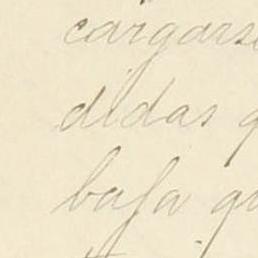 cargarse
didas q
baja qu